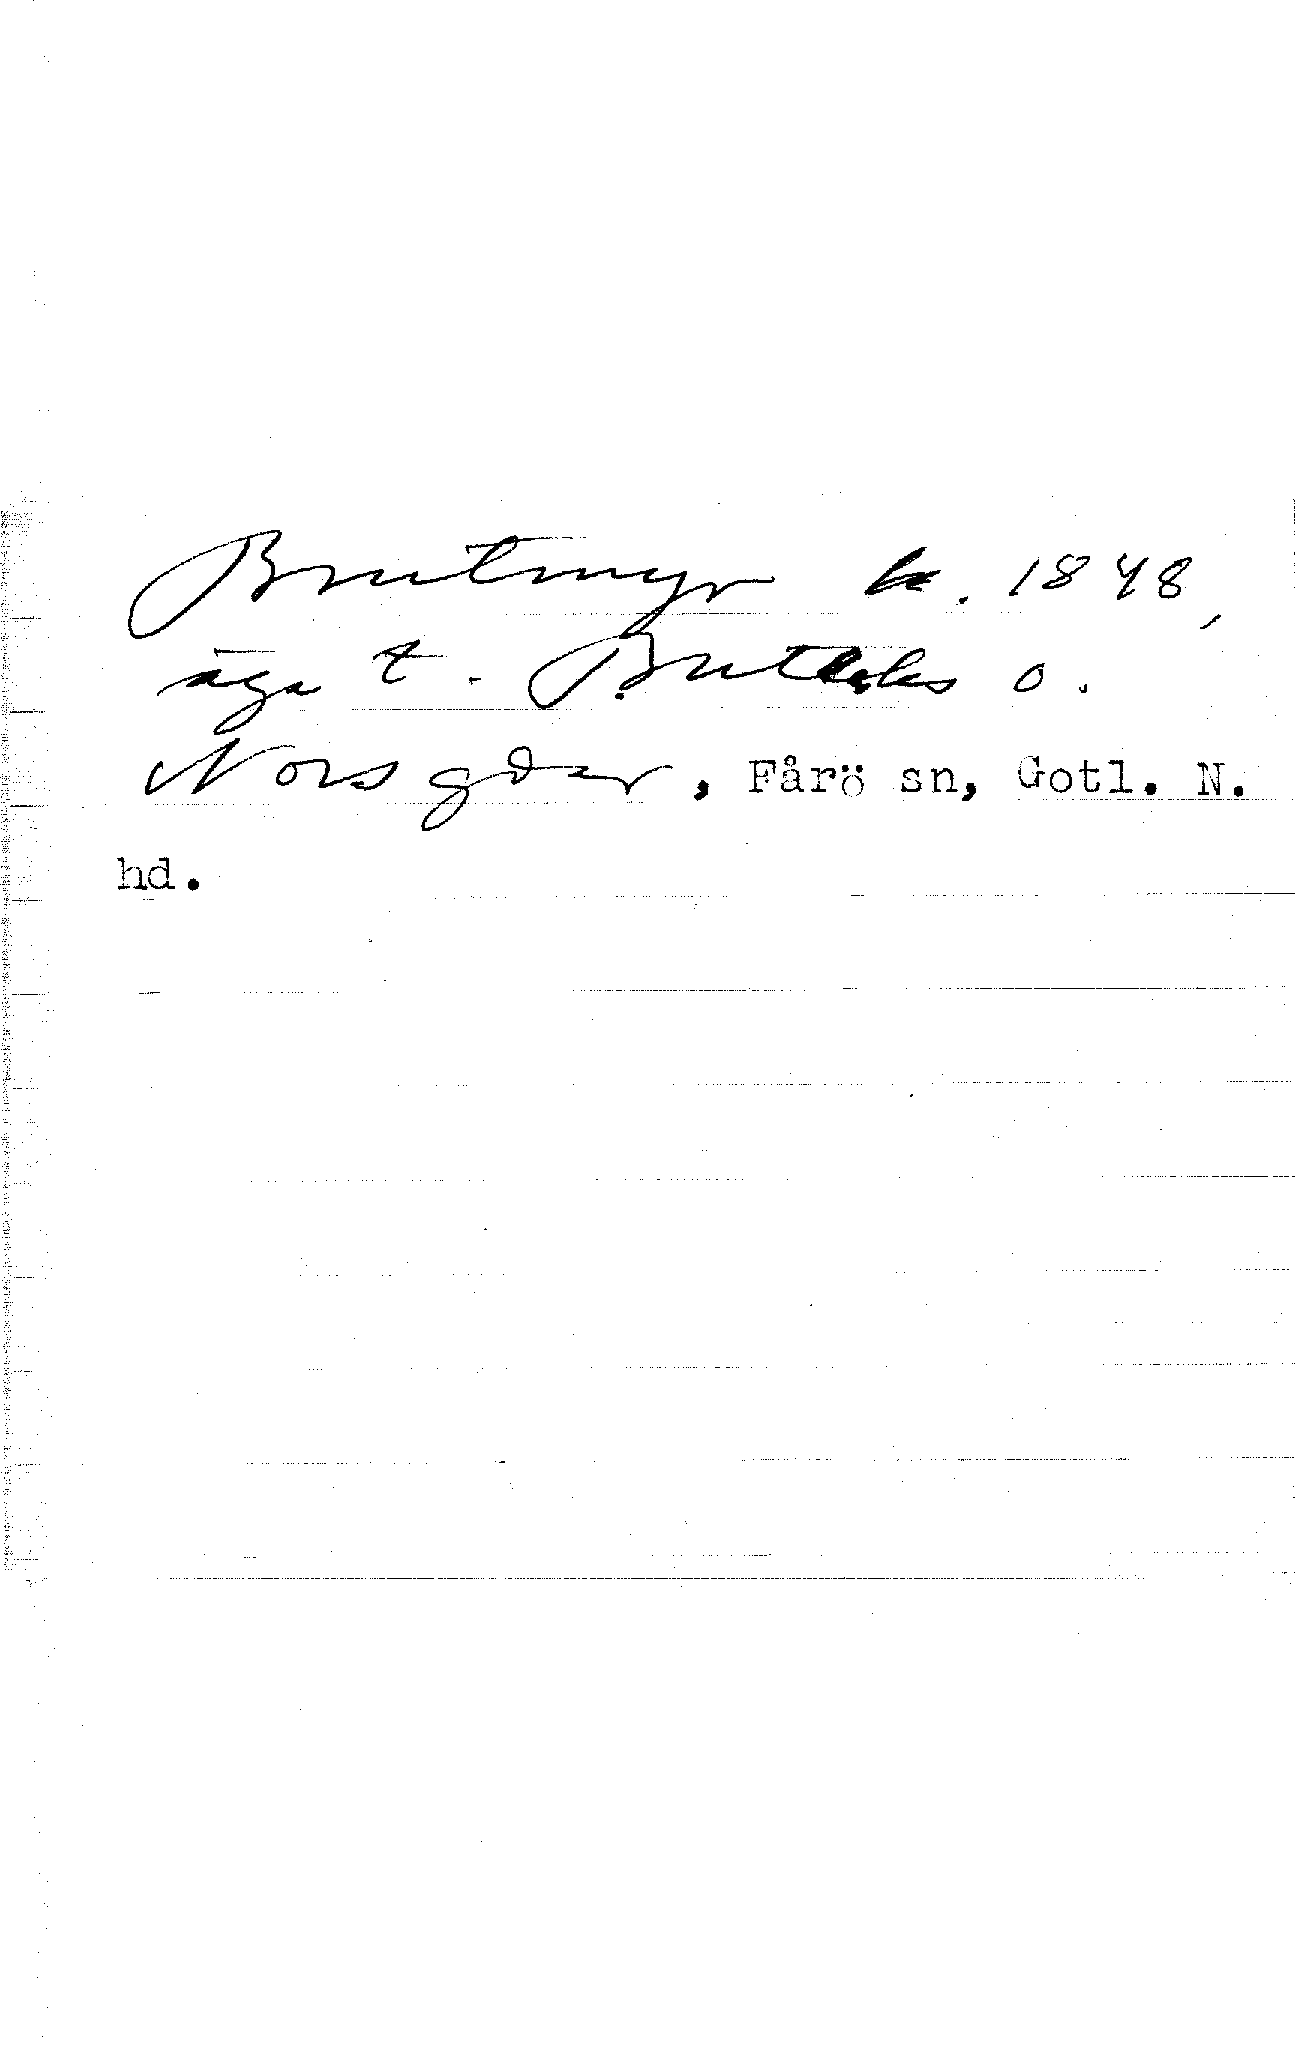 Brutmyr k. 1848,
äga t. Butleks o.
Nors gdar, Fårö sn, Gotl. N.
hd.